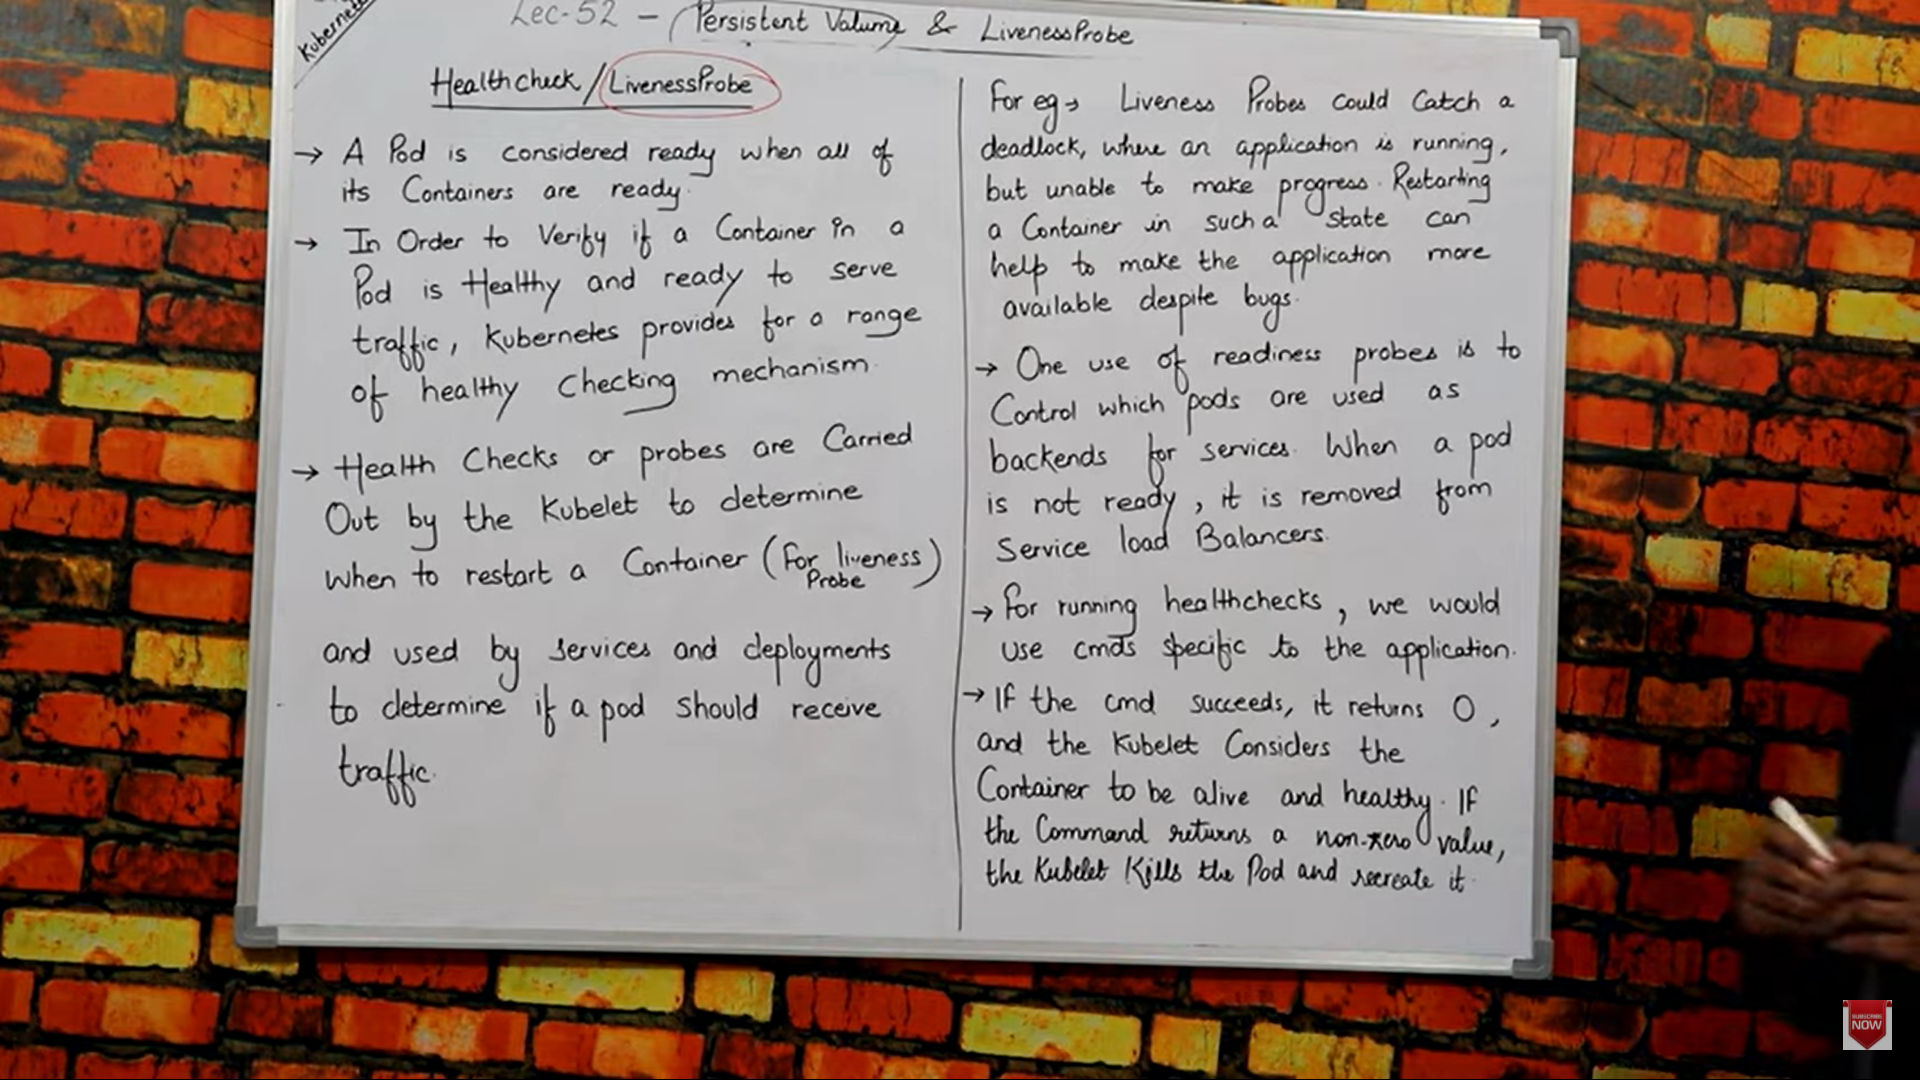 Kubernetes
Lec-52 - Persistent Volume & LivenessProbe
Healthcheck / LivenessProbe
→ A Pod is considered ready when all of
its Containers are ready.
→ In Order to Verify if a Container in a
Pod is Healthy and ready to serve
traffic, Kubernetes provides for a range
of healthy Checking mechanism.
→ Health Checks or probes are Carried
Out by the Kubelet to determine
when to restart a Container (for liveness
Probe)
and used by services and deployments
to determine if a pod should receive
traffic.
For eg→ Liveness Probes could Catch a
deadlock, where an application is running,
but unable to make progress. Restarting
a Container in such a state can
help to make the application more
available despite bugs.
→ One use of readiness probes is to
Control which pods are used as
backends for services. When a pod
is not ready, it is removed from
Service load Balancers.
→ For running healthchecks, we would
use cmds specific to the application.
→ If the cmd succeeds, it returns 0,
and the Kubelet Considers the
Container to be alive and healthy. If
the Command returns a non-zero value,
the Kubelet Kills the Pod and recreate it.
SUBSCRIBE
NOW